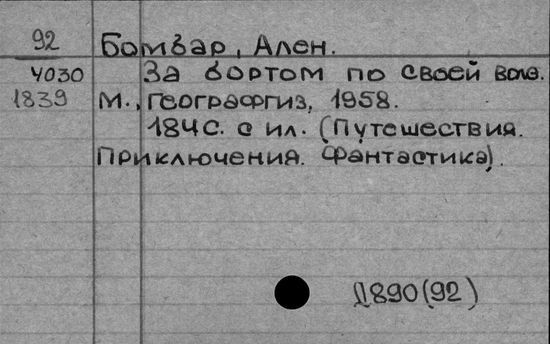 92 Бомбар, Ален.
4030 За бортом по своей воле.
1839 М., Географгиз, 1958.
184с. с ил. (Путешествия.
Приключения. Фантастика).
Д890(92)